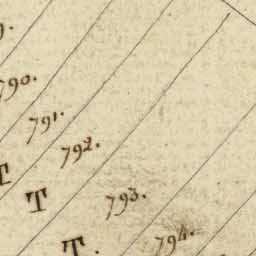 790.
791.
792.
T
T
793.
794.
T.